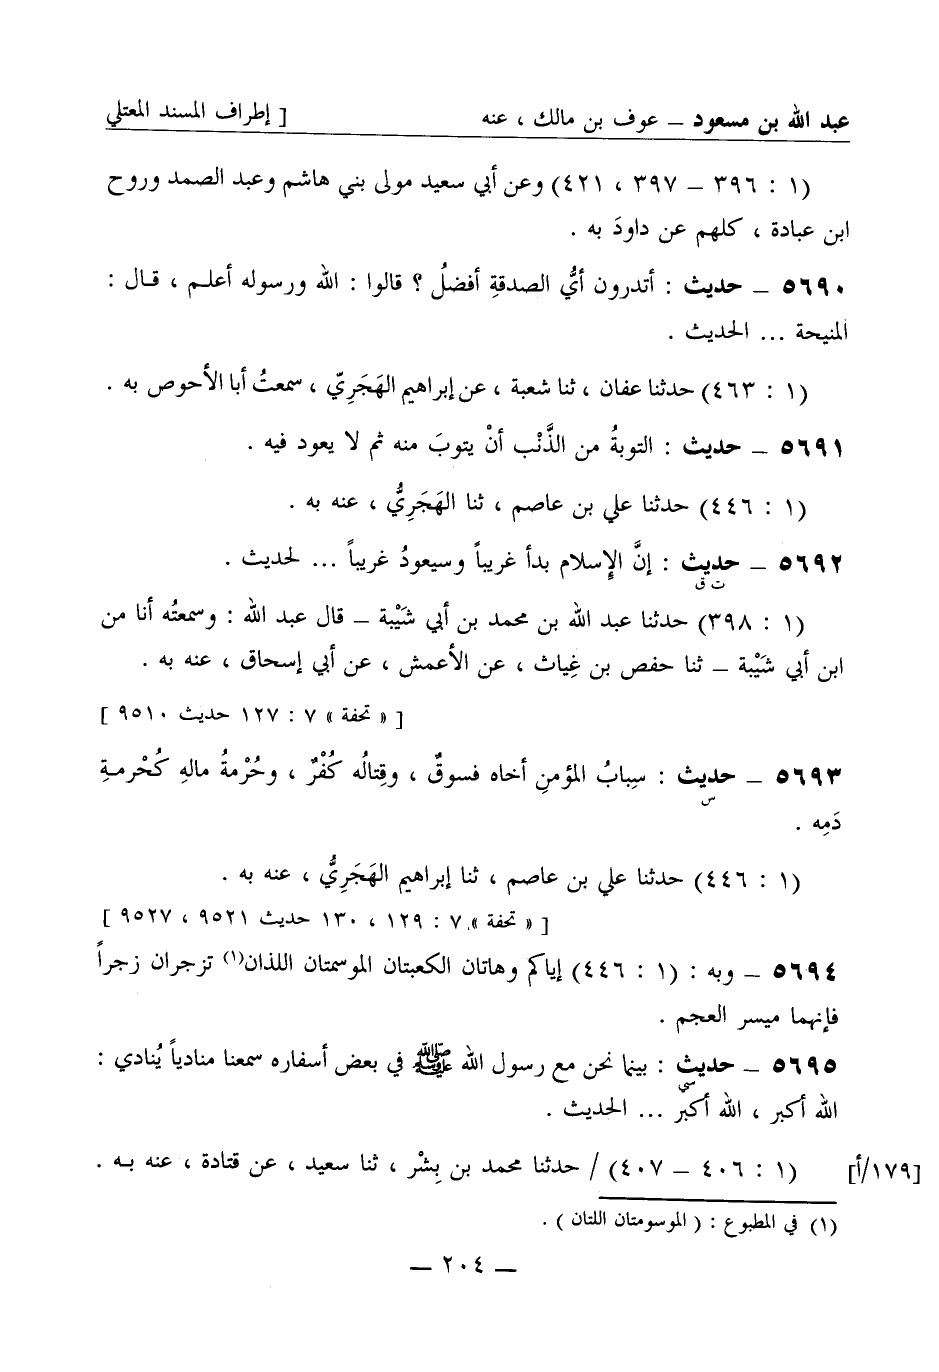 عبد الله بن مسعود – عوف بن مالك ، عنه [ إطراف المسند المعتلي
(١ : ٣٩٦ – ٣٩٧ ، ٤٢١) وعن أبي سعيد مولى بني هاشم وعبد الصمد وروح
ابن عبادة ، كلهم عن داودَ به .
٥٦٩٠ – حديث : أتدرون أيُّ الصدقةِ أفضلُ ؟ قالوا : الله ورسوله أعلم ، قال :
المنيحة ... الحديث .
(١ : ٤٦٣) حدثنا عفان ، ثنا شعبة ، عن إبراهيم الهَجَرِيّ ، سمعتُ أبا الأحوص به .
٥٦٩١ – حديث : التوبةُ من الذَّنْب أنْ يتوبَ منه ثم لا يعود فيه .
(١ : ٤٤٦) حدثنا علي بن عاصم ، ثنا الهَجَرِيُّ ، عنه به .
٥٦٩٢ – حديث : إنَّ الإِسلام بدأ غريباً وسيعودُ غريباً ... لحديث .
ت ق
(١ : ٣٩٨) حدثنا عبد الله بن محمد بن أبي شَيْبة – قال عبد الله : وسمعتُه أنا من
ابن أبي شَيْبة – ثنا حفص بن غِياث ، عن الأعمش ، عن أبي إسحاق ، عنه به .
[ « تحفة » ٧ : ١٢٧ حديث ٩٥١٠ ]
٥٦٩٣ – حديث : سِبابُ المؤمنِ أخاه فسوقٌ ، وقِتالُه كُفْرٌ ، وحُرْمةُ مالهِ كَحُرمةِ
س
دَمِه .
(١ : ٤٤٦) حدثنا علي بن عاصم ، ثنا إبراهيم الهَجَرِيُّ ، عنه به .
[ « تحفة » ٧ : ١٢٩ ، ١٣٠ حديث ٩٥٢١ ، ٩٥٢٧ ]
٥٦٩٤ – وبه : (١ : ٤٤٦) إياكم وهاتان الكعبتان الموسمتان اللذان(١) تزجران زجراً
فإنهما ميسر العجم .
٥٦٩٥ – حديث : بينما نحن مع رسول الله ﷺ في بعض أسفاره سمعنا منادياً يُنادي :
سي
الله أكبر ، الله أكبر ... الحديث .
[١٧٩/أ] (١ : ٤٠٦ – ٤٠٧) / حدثنا محمد بن بِشْر ، ثنا سعيد ، عن قتادة ، عنه به .
(١) في المطبوع : ( الموسومتان اللتان ) .
– ٢٠٤ –